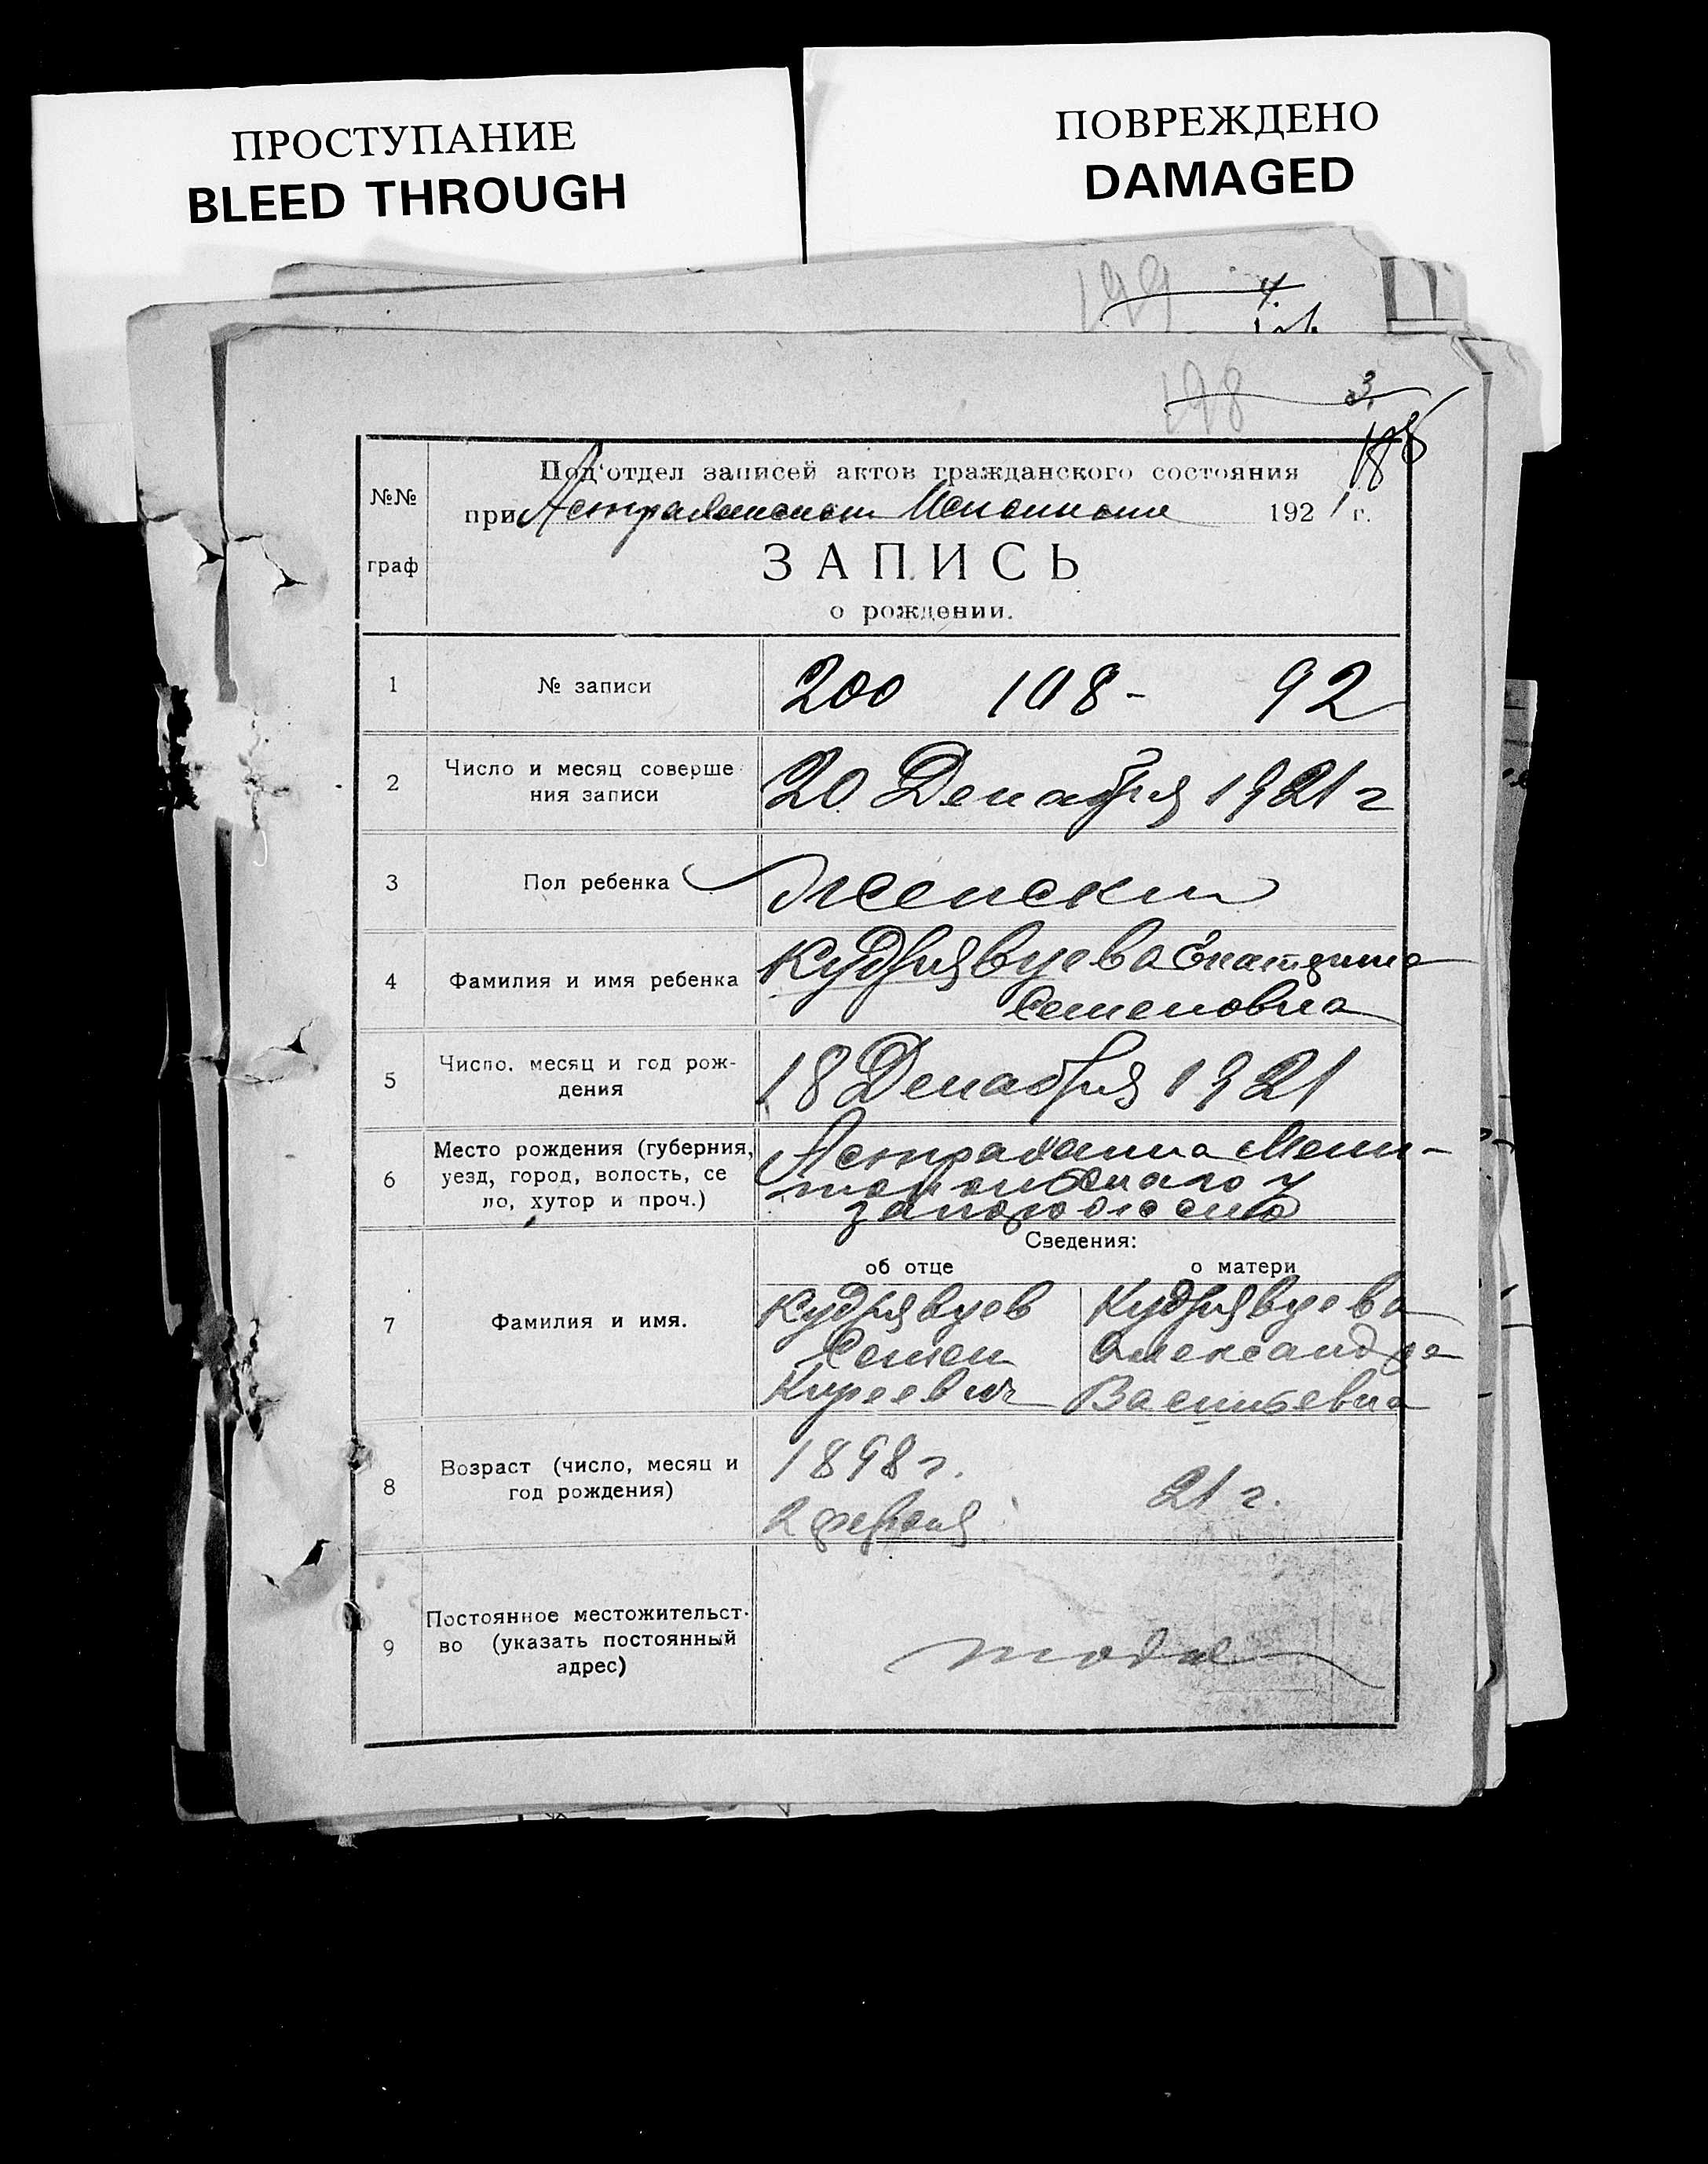 ПРОСТУПАНИЕ
BLEED THROUGH
ПОВРЕЖДЕНО
DAMAGED
199 4.
198 3.
№№
граф
Под'отдел записей актов гражданского состояния
при Астраханском 1921 г.
ЗАПИСЬ
о рождении.
1 № записи 200 198- 92
2 Число и месяц соверше
ния записи 20 Декабря 1921 г
3 Пол ребенка Женски
4 Фамилия и имя ребенка Кудрявцева Екатерина
Семеновна
5 Число, месяц и год рож-
дения 18 Декабря 1921
6 Место рождения (губерния,
уезд, город, волость, се
ло, хутор и проч.) Астраханка Мели-
топольскаго у
Сведения:
об отце о матери
7 Фамилия и имя.
Кудрявцев Кудрявцева
Семен Александра
Киреевич Васильевна
8 Возраст (число, месяц и
год рождения)
1898 г. 21 г.
2 февраля
9 Постоянное местожительст-
во (указать постоянный
адрес)
тоже